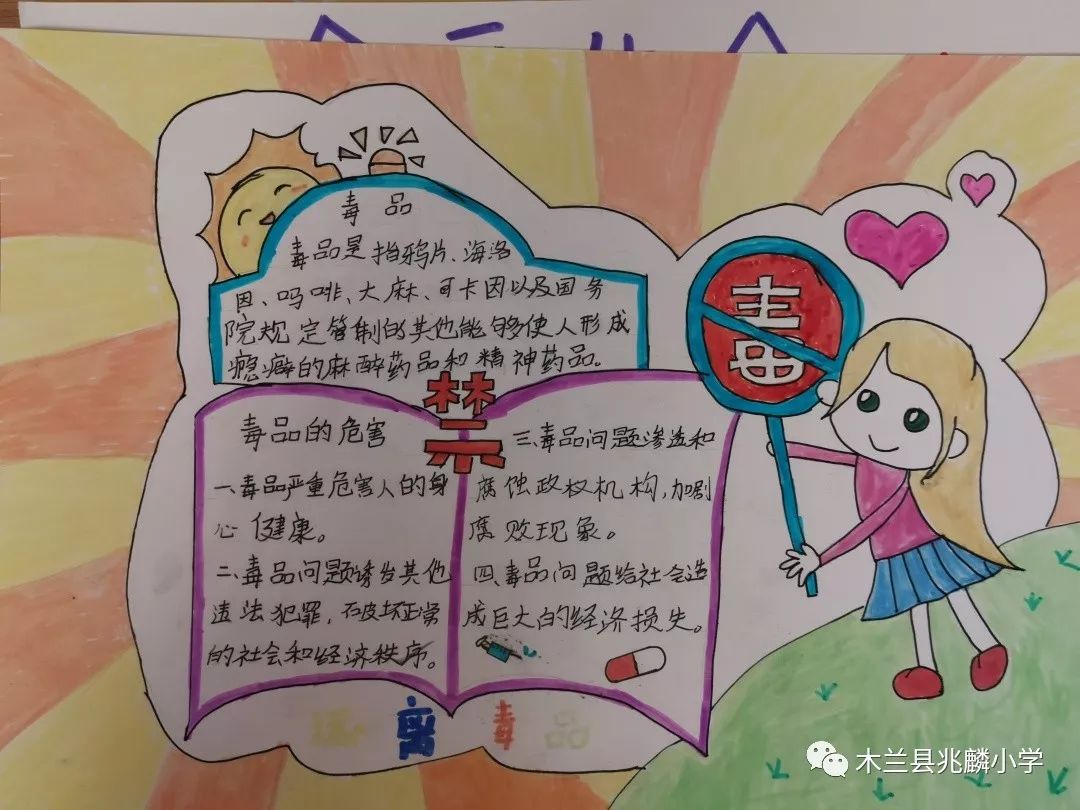 毒品
毒品是指鸦片、海洛
因、吗啡、大麻、可卡因以及国务
院规定管制的其他能够使人形成
瘾癖的麻醉药品和精神药品。
禁
毒
毒品的危害
一、毒品严重危害人的身
心健康。
二、毒品问题诱发其他
违法犯罪,破坏正常
的社会和经济秩序。
三、毒品问题渗透和
腐蚀政权机构,加剧
腐败现象。
四、毒品问题给社会造
成巨大的经济损失。
离毒品
木兰县兆麟小学